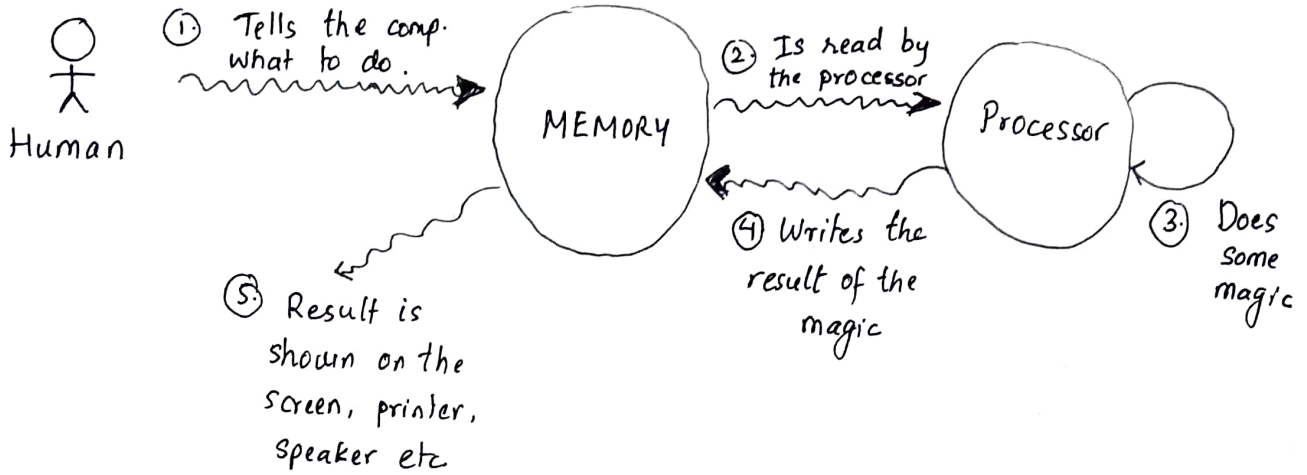 Human
① Tells the comp.
what to do.
MEMORY
② Is read by
the processor
Processor
③ Does
some
magic
④ Writes the
result of the
magic
⑤ Result is
shown on the
screen, printer,
speaker etc